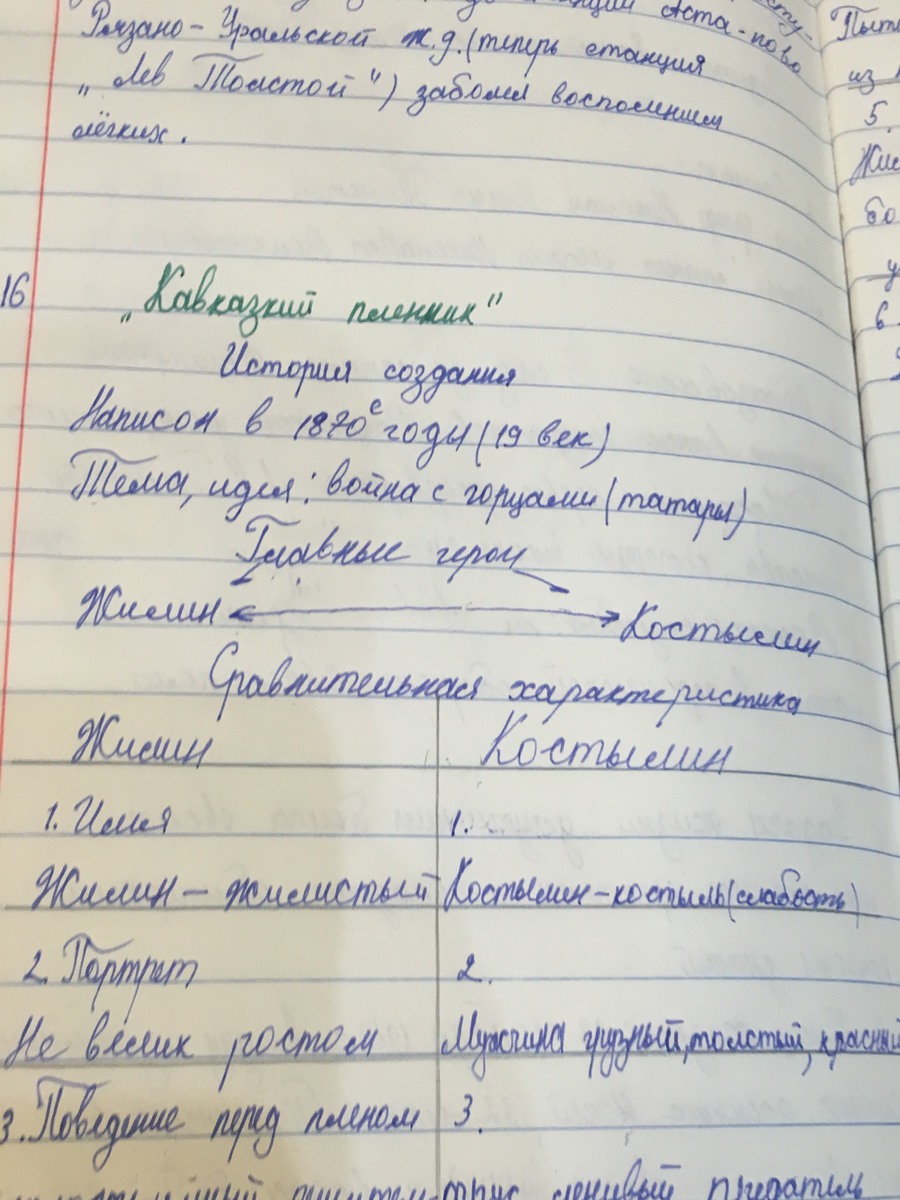 Аста-пово
Рязано-Уральской ж.д. (теперь станция
"Лев Толстой") заболел восполением
лёгких.
16
"Кавказкий пленник"
История создания
Написон в 1870е годы (19 век)
Тема, идея: война с горцами (татары)
Главные герои
Жилин Костылин
Сравнительная характеристика
Жилин Костылин
1. Имя 1.
Жилин - жилистый Костылин - костыль (слабость)
2. Портрет 2.
Не велик ростом Мужчина грузный, толстый, красный
3. Поведение перед пленом 3.
трус, ленивый, предатель
Пыта
из
5.
Жис
бо
у
6